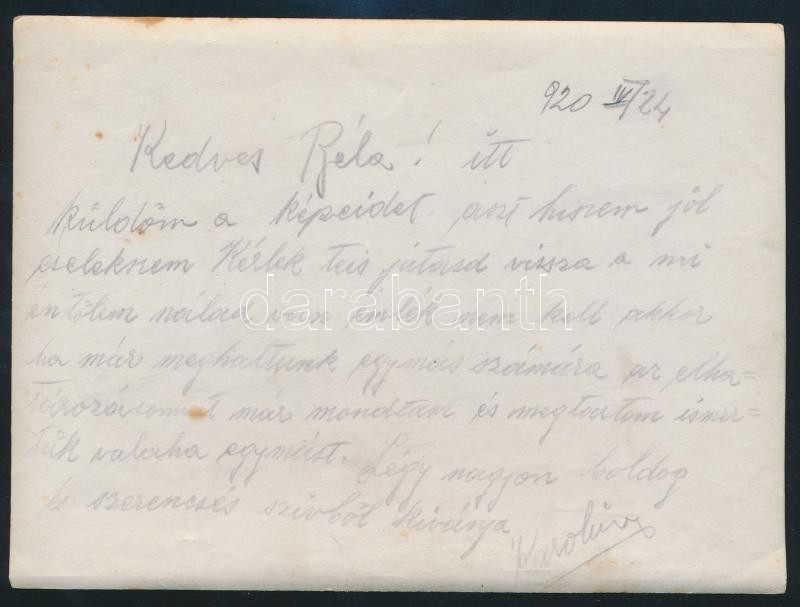 920 IV/24
Kedves Béla! itt
küldöm a képeidet aszt hiszem jól
cselekszem Kérlek teis jutasd vissza a mi
én tőlem nálad van emlék nem kell akkor
ha már meghaltunk egymás számára az elha=
tározásomat már mondtam és megtartom ismer=
tük valaha egymást. Légy nagyon boldog
és szerencsés szivből kivánja
Karolin
darabanth.com